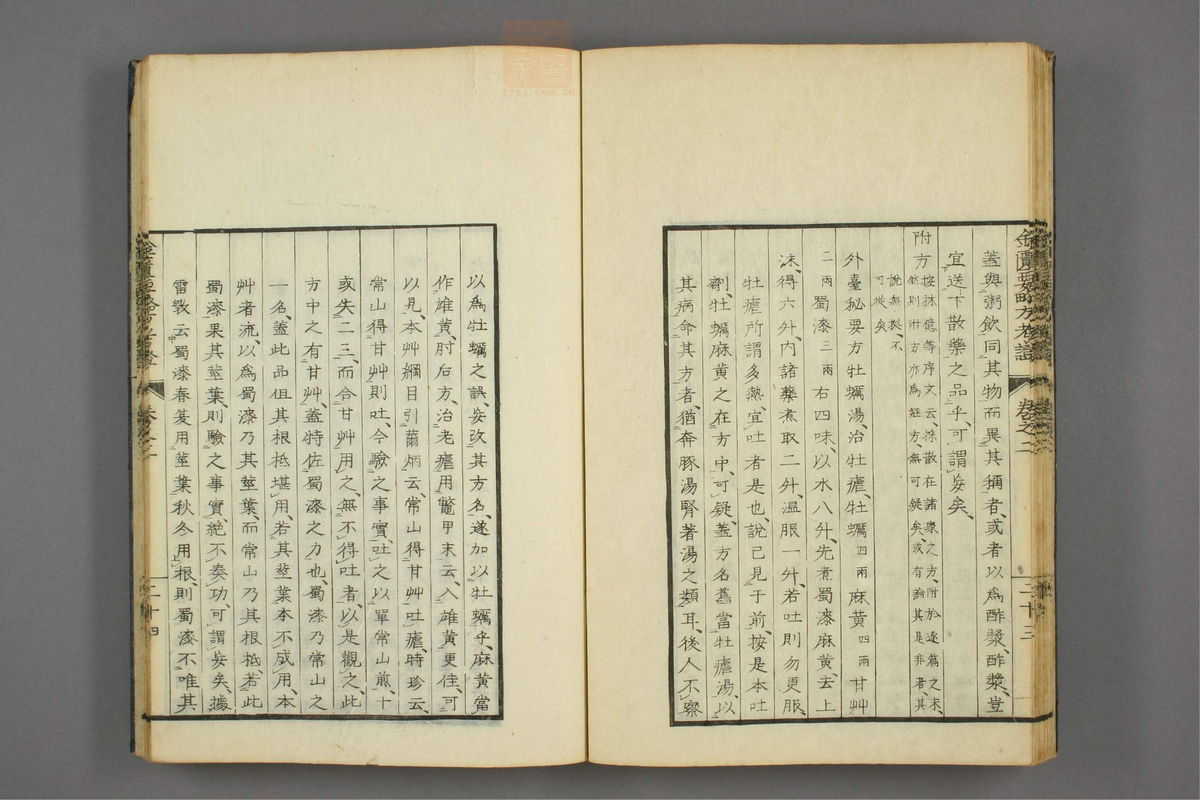 蓋與粥飲同其物而異其稱者、或者以爲酢漿、酢漿豈
宜送下散藥之品乎、可謂妄矣、
附方 按林億等序文云、採散在諸家之方、附於逐篇之末、
然則附方亦爲經方、無可疑矣、或有論其是非者、其
說無稽、不
可從矣、
外臺秘要方牡蠣湯、治牡瘧、牡蠣四兩麻黄四兩甘艸
二兩蜀漆三兩右四味、以水八升、先煮蜀漆麻黄、去上
沫、得六升、内諸藥煮取二升、温服一升、若吐則勿更服、
牡瘧所謂多熱、宜吐者是也、說已見于前、按是本吐
劑、牡蠣麻黄之在方中、可疑、蓋方名舊當牡瘧湯、以
其病命其方者、猶奔豚湯腎著湯之類耳、後人不察
金匱要略方考證 卷之二 二十三
以爲牡蠣之誤、妄改其方名、遂加以牡蠣乎、麻黄當
作雄黄、肘后方、治老瘧、用鼈甲末云、入雄黄更佳、可
以見、本艸綱目引薾炳云、常山得甘艸吐瘧、時珍云、
常山得甘艸則吐、今驗之事實、吐之以單常山煎、十
或失二三、而合甘艸用之、無不得吐者、以是觀之、此
方中之有甘艸、蓋特佐蜀漆之力也、蜀漆乃常山之
一名、蓋此品但其根柢堪用、若其莖葉本不成用、本
艸者流、以爲蜀漆乃其莖葉、而常山乃其根柢、若此
蜀漆果其莖葉、則驗之事實、絶不奏功、可謂妄矣、據
雷斅云、蜀漆春夏用莖葉、秋冬用根、則蜀漆不唯其
二十四